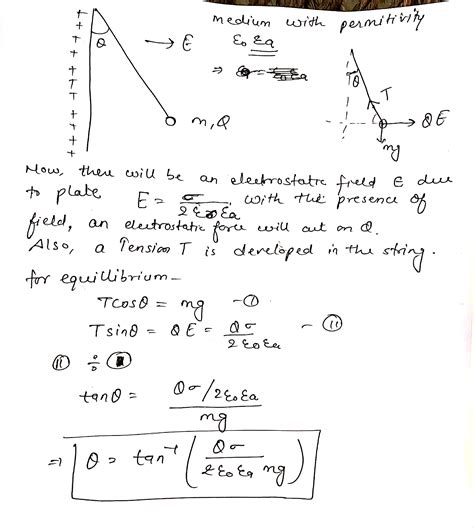 medium with permitivity
ε₀ εa
θ
→ E
⇒
m, Q
θ
T
T
QE
mg
Now, there will be an electrostatic field E due
to plate E = σ / 2ε₀εa, with the presence of
field, an electrostatic force will act on Q.
Also, a Tension T is developed in the string.
for equillibrium-
Tcosθ = mg -(I)
Tsinθ = QE = Qσ / 2ε₀εa - (II)
(II) ÷ (I)
tanθ = Qσ/2ε₀εa / mg
⇒ θ = tan⁻¹ ( Qσ / 2ε₀εa mg )